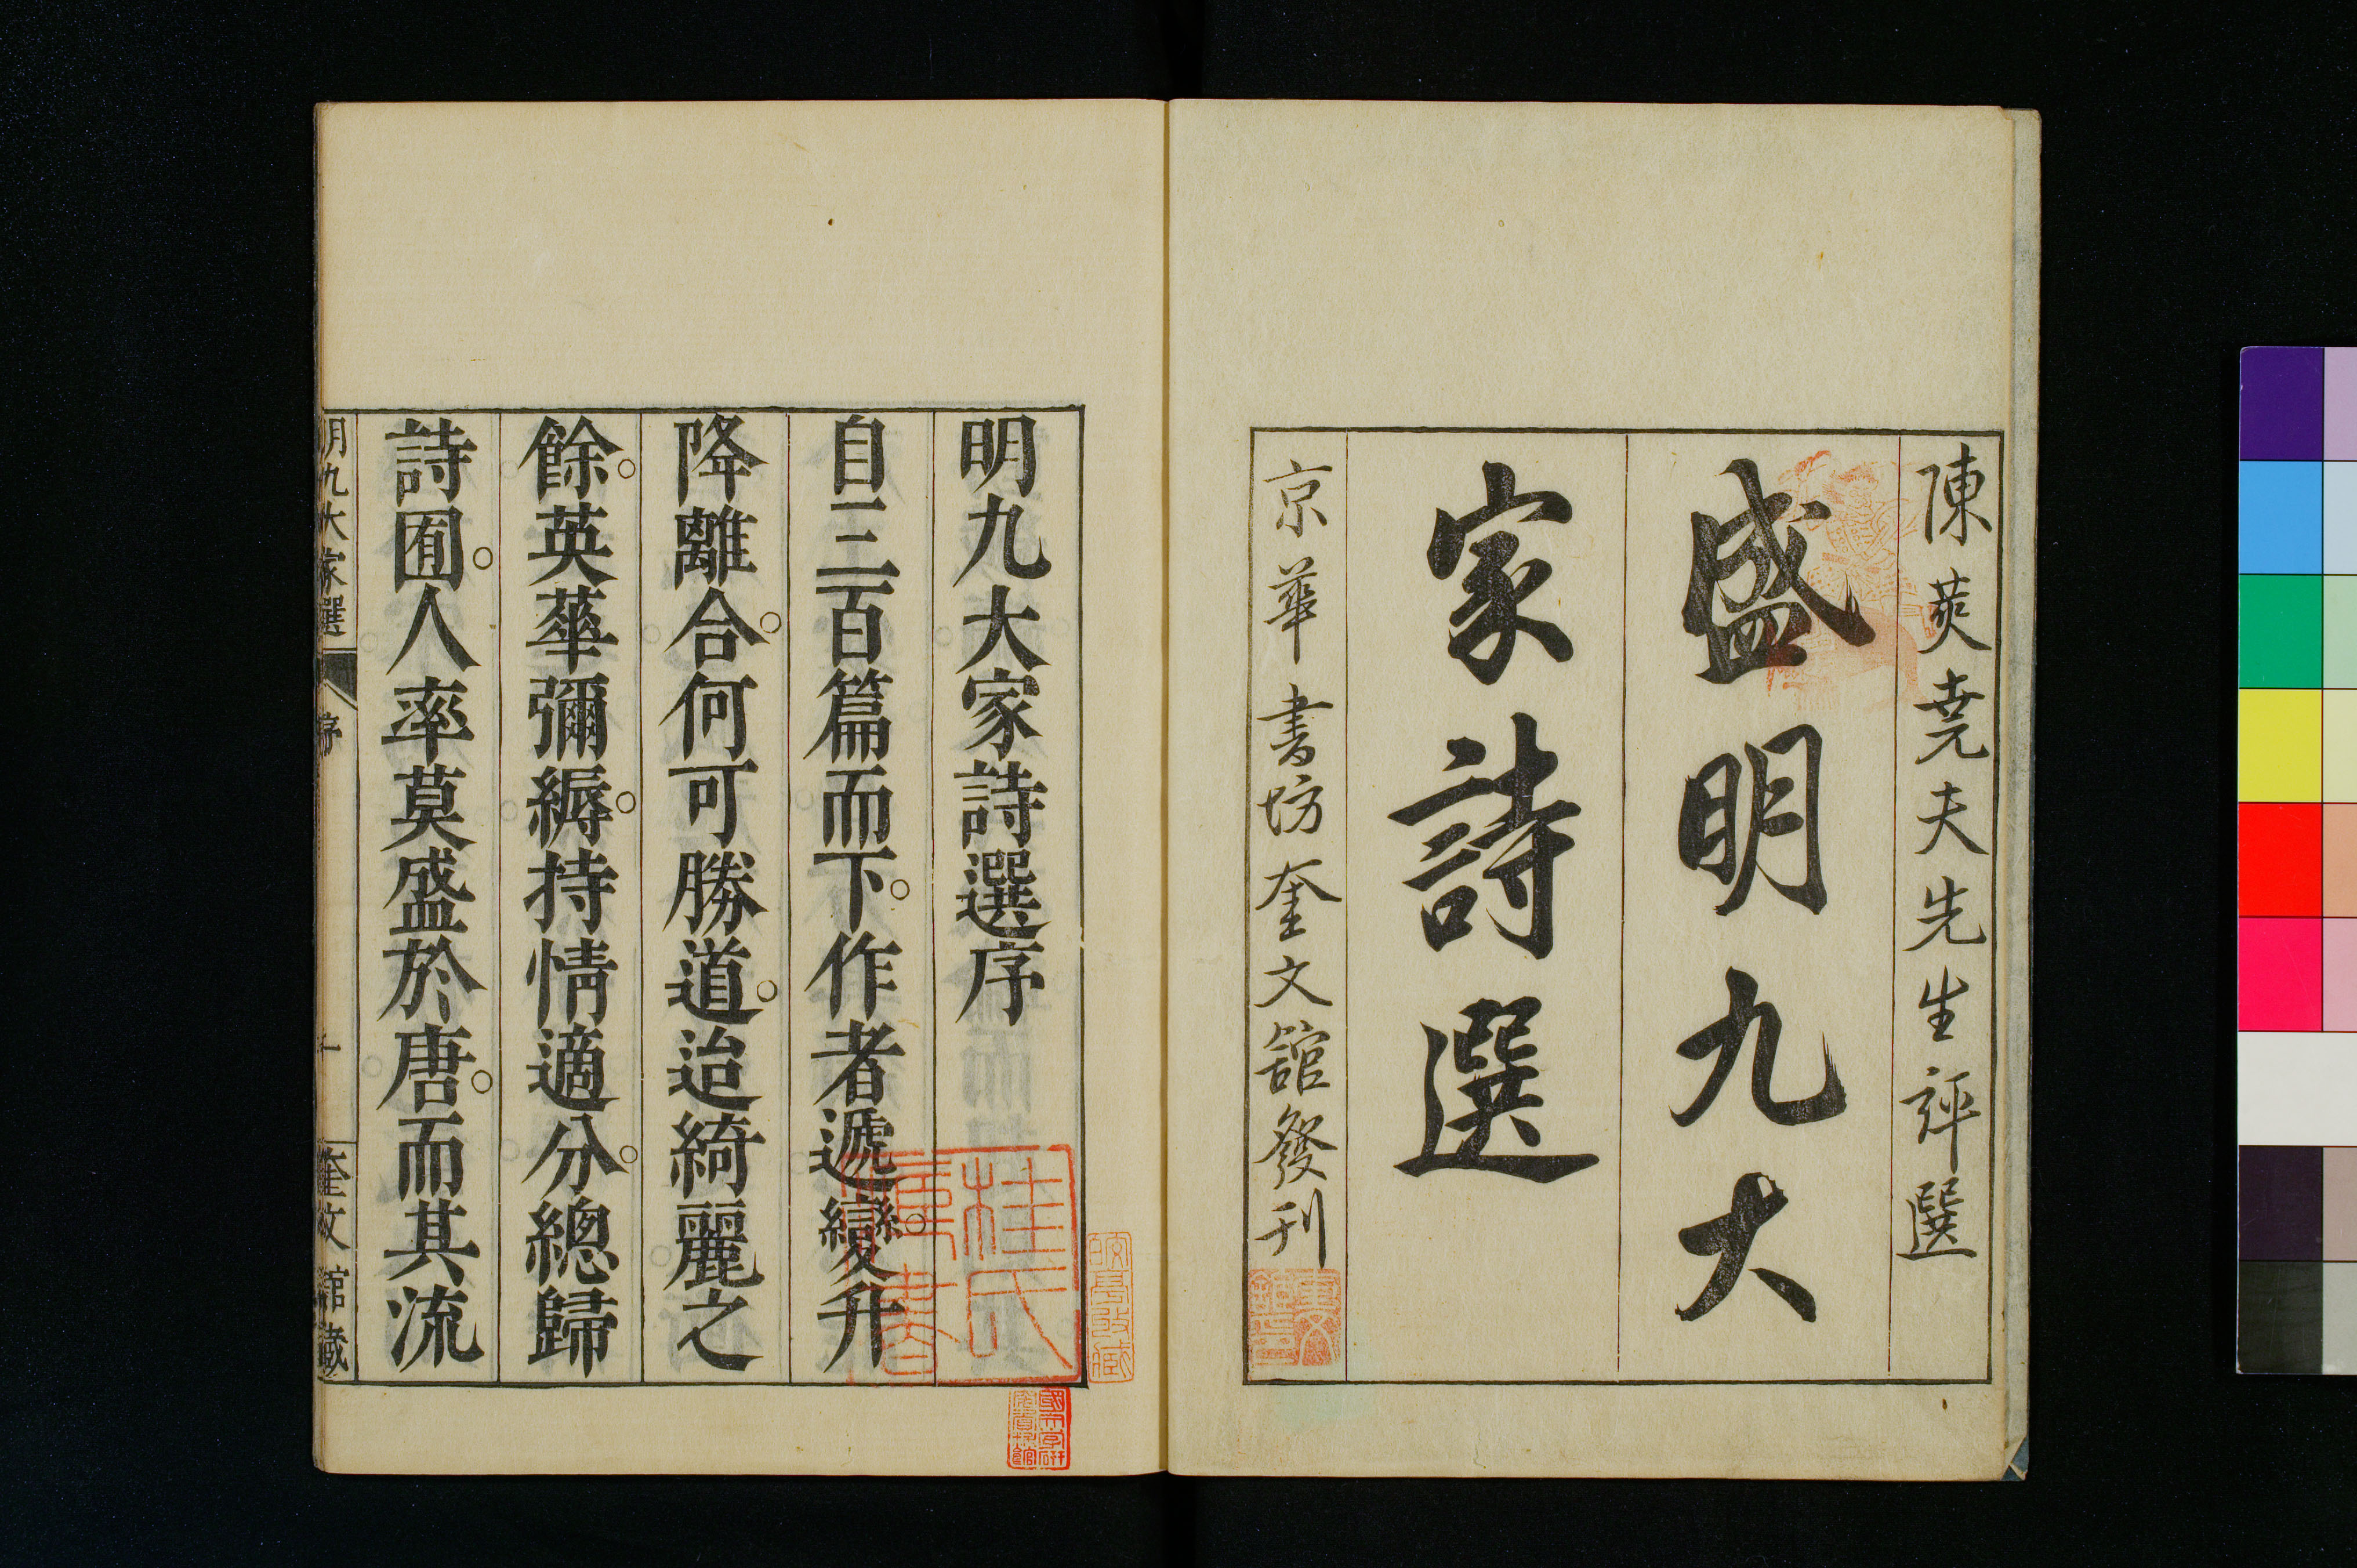 陳莢堯夫先生評選
盛明九大
家詩選
京華書坊奎文舘發刊
明九大家詩選序
自三百篇而下。作者遞變。升
降離合。何可勝道。迨綺麗之
餘。英華彌縟。持情適分。總歸
詩囿。人率莫盛於唐。而其流
明九大家選
序
一
奎文館藏
桂氏